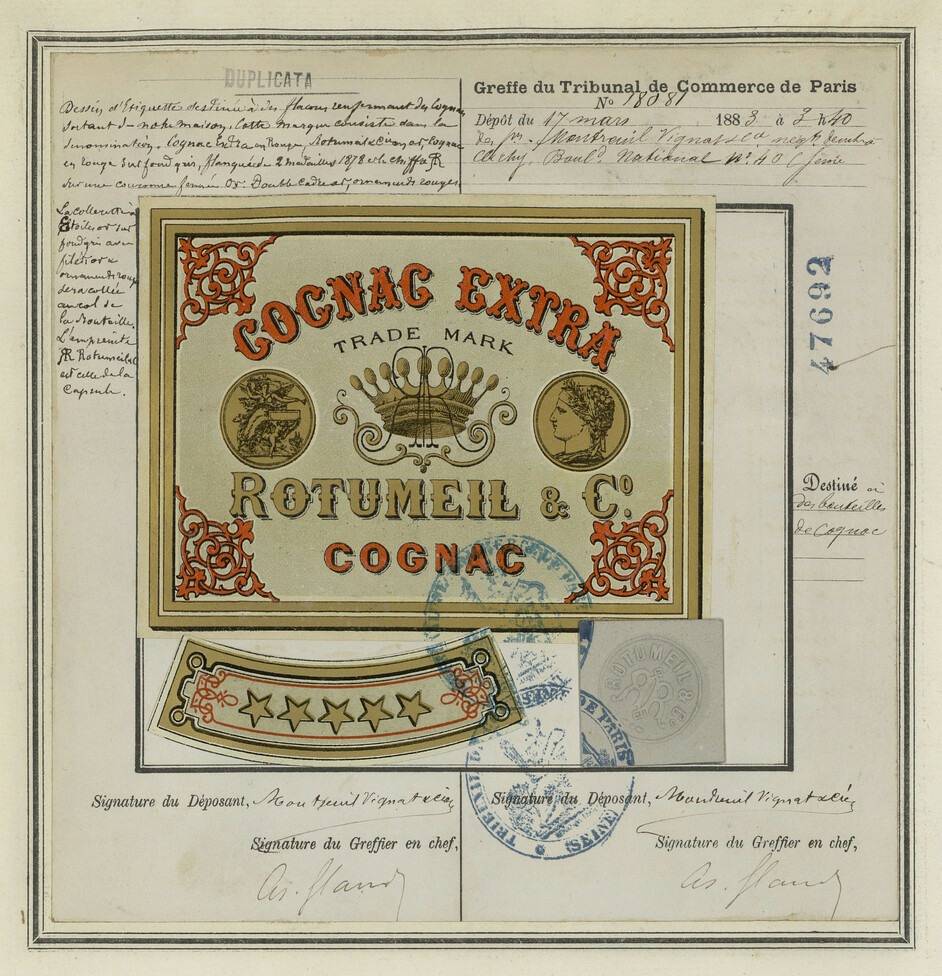 DUPLICATA
Dessin d'Etiquette destinée à des flacons renfermant du Cognac
sortant de notre maison. Cette marque consiste dans la
dénomination. Cognac Extra en Rouge, Rotumeil & Cie en or, Cognac
en rouge sur fond gris, flanquée de 2 médailles 1878 et le chiffre AR
sur une couronne fermée Or. Double cadre or, ornements rouges
La collerette à
Etoiles or sur
fond gris avec
filets or &
ornements rouges
sera collée
au col de
la Bouteille.
L'empreinte
AR Rotumeil & Co
est celle de la
Capsule.
Greffe du Tribunal de Commerce de Paris
No 18081
Dépôt du 17 mars 1883 à 3h40
Montreuil Vignat & Ca
Clichy, Bould National No. 40 (Seine
47692
COGNAC EXTRA
TRADE MARK
ROTUMEIL & Co.
COGNAC
Destiné à
des bouteilles
de Cognac
ROTUMEIL & Co
TRIBUNAL DE PARIS
(SEINE)
Signature du Déposant, Montreuil Vignat & Cie
Signature du Greffier en chef,
Signature du Déposant, Montreuil Vignat & Cie
Signature du Greffier en chef,